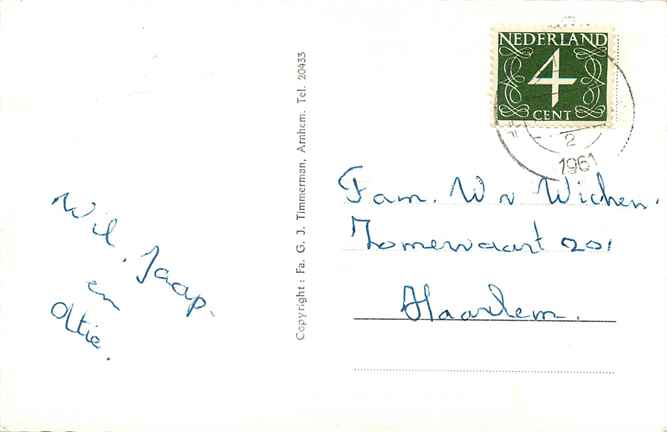 Wil, Jaap
en
Ottie.
Copyright: Fa. G. J. Timmerman, Arnhem. Tel. 20433
NEDERLAND
4
CENT
2
1961
Fam. W v Wichen.
Zomervaart 201
Haarlem.